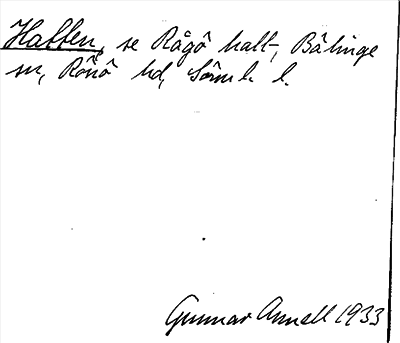 Hallen, se Rågö hall-, Bälinge
sn, Rönö hd, Söml. l.
Gunnar Arnell 1933